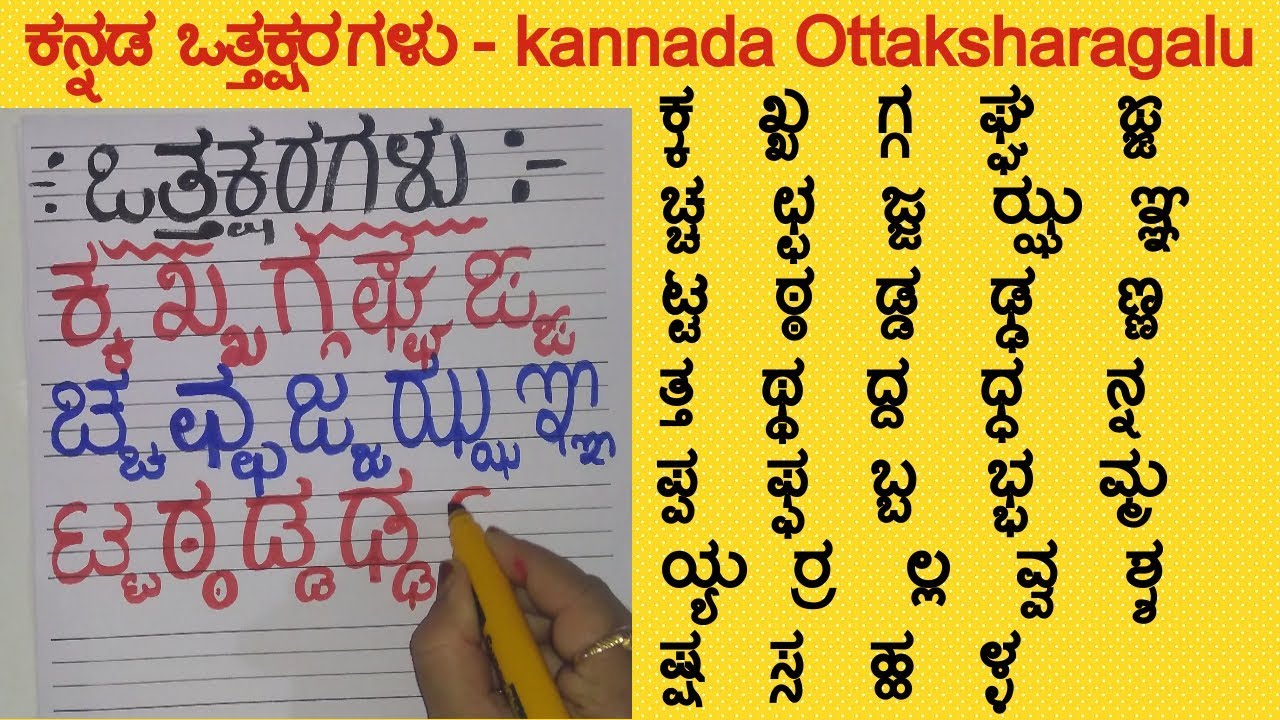 ಕನ್ನಡ ಒತ್ತಕ್ಷರಗಳು - kannada Ottaksharagalu
ಒತ್ತಕ್ಷರಗಳು :-
ಕ್ಕ ಖ್ಖ ಗ್ಗ ಘ್ಘ ಙ್ಙ
ಚ್ಚ ಛ್ಛ ಜ್ಜ ಝ್ಝ ಞ್ಞ
ಟ್ಟ ಠ್ಠ ಡ್ಡ ಢ್ಢ
ಕ್ಕ ಖ್ಖ ಗ್ಗ ಘ್ಘ ಙ್ಙ
ಚ್ಚ ಛ್ಛ ಜ್ಜ ಝ್ಝ ಞ್ಞ
ಟ್ಟ ಠ್ಠ ಡ್ಡ ಢ್ಢ ಣ್ಣ
ತ್ತ ಥ್ಥ ದ್ದ ಧ್ಧ ನ್ನ
ಪ್ಪ ಫ್ಫ ಬ್ಬ ಭ್ಭ ಮ್ಮ
ಯ್ಯ ರ್ರ ಲ್ಲ ವ್ವ ಶ್ಶ
ಷ್ಷ ಸ್ಸ ಹ್ಹ ಳ್ಳ